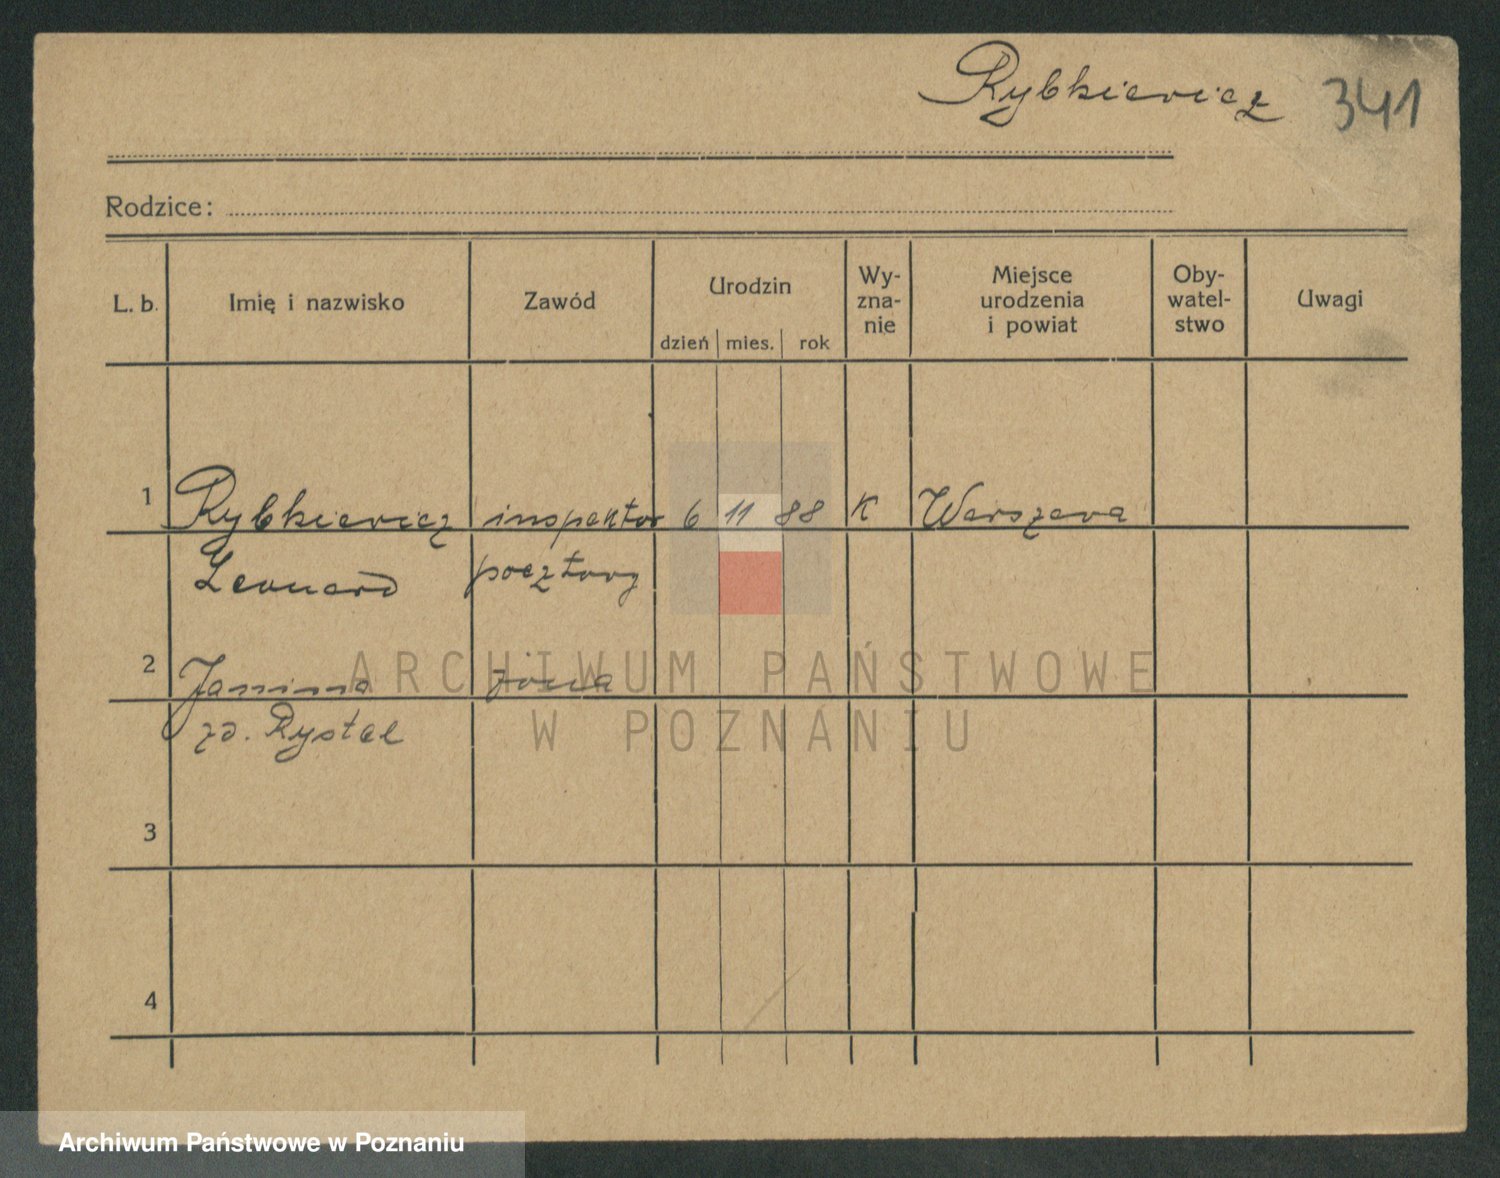 Rybkiewicz 341
Rodzice:
L. b. Imię i nazwisko Zawód Urodzin Wy-zna-nie Miejsce urodzenia i powiat Oby-watel-stwo Uwagi
dzień mies. rok
1 Rybkiewicz inspektor 6 11 88 K Warszawa
Leonard pocztowy
2 Janina żona
zd. Rystel
3
4
ARCHIWUM PAŃSTWOWE
W POZNANIU
Archiwum Państwowe w Poznaniu